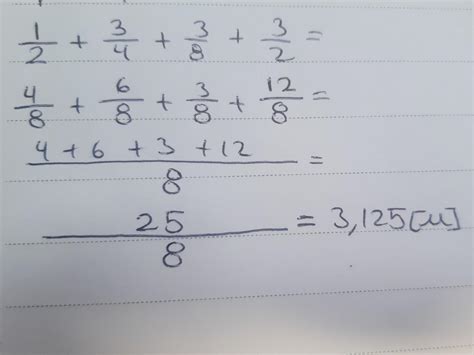 1/2 + 3/4 + 3/8 + 3/2 =
4/8 + 6/8 + 3/8 + 12/8 =
(4 + 6 + 3 + 12)/8 =
25/8 = 3,125[м]